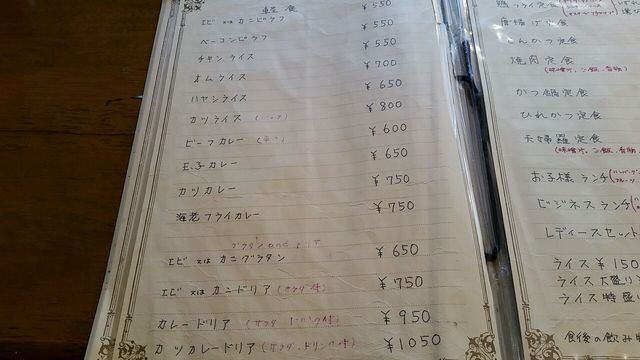 軽食
エビ又はカニピラフ ¥550
ベーコンピラフ ¥550
チキンライス ¥550
オムライス ¥700
ハヤシライス ¥650
カツライス ¥800
ビーフカレー ¥600
玉子カレー ¥650
カツカレー ¥750
海老フライカレー ¥750
エビ又はカニグラタン ¥650
エビ又はカニドリア(サラダ付) ¥750
カレードリア ¥950
カツカレードリア(サラダ・ドリンク付) ¥1050
定食
唐揚げ定食
とんかつ定食
焼肉定食
(味噌汁、ご飯、香物)
かつ鍋定食
ひれかつ定食
天婦羅定食
(味噌汁、ご飯、香物
お子様ランチ
ビジネスランチ
レディースセット
ライス ¥150
ライス大盛り
ライス特盛り
食後の飲み